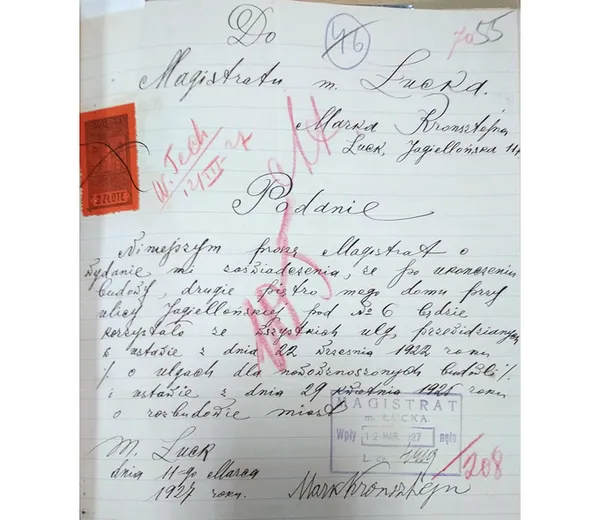 Do
46
55
Magistratu m. Łucka.
Marka Kronsztejna
Łuck, Jagiellońska
W. Tech
12/III 27
2 ZŁOTE
Podanie
Niniejszym proszę Magistrat o
wydanie mi zaświadczenia, że po ukończeniu
budowy, drugie piętro mego domu przy
ulicy Jagiellońskiej pod № 6 będzie
korzystało ze wszystkich ulg, przewidzianych
w ustawie z dnia 22 września 1922 roku
/ o ulgach dla nowowznoszonych budowli /.
i ustawie z dnia 29 kwietnia 1925 roku
o rozbudowie miast
MAGISTRAT
m. ŁUCKA.
Wpłynęło 12 MAR. 27
L. dz.
/208
m. Łuck
dnia 11-go Marca
1927 roku.
Mark Kronsztejn